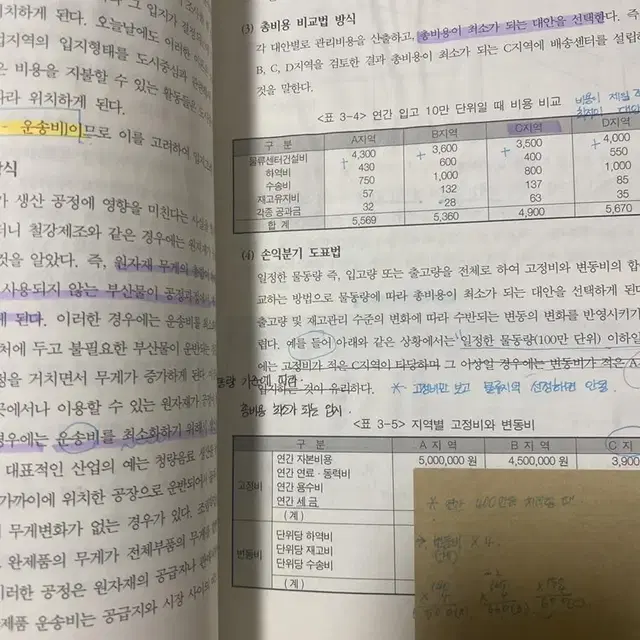 치하게 된다. 오늘날에도 이러한
지역의 입지형태를 도시중심과
은 비용을 지불할 수 있는 활동들은
따라 위치하게 된다.
- 운송비)이므로 이를 고려하여
방식
가 생산 공정에 영향을 미친다는 사실을
더니 철강제조와 같은 경우에는 원자재
것을 알았다. 즉, 원자재 무게의
사용되지 않는 부산물이 공정과정에서
게 된다. 이러한 경우에는 운송비를 최소
처에 두고 불필요한 부산물이 운반되는
정을 거치면서 무게가 증가하게 된다.
곳에서나 이용할 수 있는 원자재가
경우에는 운송비를 최소화하기 위해
대표적인 산업의 예는 청량음료 생산
가까이에 위치한 공장으로 운반되어서
무게변화가 없는 경우가 있다.
완제품의 무게가 전체부품의 무게와
이러한 공정은 원자재의 공급지나
제품 운송비는 공급지와 시장 사이의
(3) 총비용 비교법 방식
각 대안별로 관리비용을 산출하고, 총비용이 최소가 되는 대안을 선택한다. 즉
B, C, D지역을 검토한 결과 총비용이 최소가 되는 C지역에 배송센터를 설립하
것을 말한다.
비용이 제일
<표 3-4> 연간 입고 10만 단위일 때 비용 비교
구 분 A지역 B지역 C지역 D지역
물류센터건설비 4,300 + 3,600 + 3,500 + 4,000
하역비 430 600 400 550
수송비 750 1,000 800 1,000
재고유지비 57 132 137 85
각종 공과금 32 28 63 35
합 계 5,569 5,360 4,900 5,670
(4) 손익분기 도표법
일정한 물동량 즉, 입고량 또는 출고량을 전제로 하여 고정비와 변동비의 합
교하는 방법으로 물동량에 따라 총비용이 최소가 되는 대안을 선택하게 된다
출고량 및 재고관리 수준의 변화에 따라 수반되는 변동의 변화를 반영시키기
렵다. 예를 들어 아래와 같은 상황에서는 일정한 물동량(100만 단위) 이하일
에는 고정비가 적은 C지역이 타당하며 그 이상일 경우에는 변동비가 적은 A
입지하는 것이 유리하다. * 고정비만 보고 물류지역 선정하면 안됨.
총비용 최소가 되는 입지
<표 3-5> 지역별 고정비와 변동비
구 분 A 지역 B 지역 C 지
고정비 연간 자본비용 5,000,000원 4,500,000원 3,900
연간 연료·동력비
연간 용수비
연간 세금
(계)
변동비 단위당 하역비
단위당 재고비
단위당 수송비
(계)